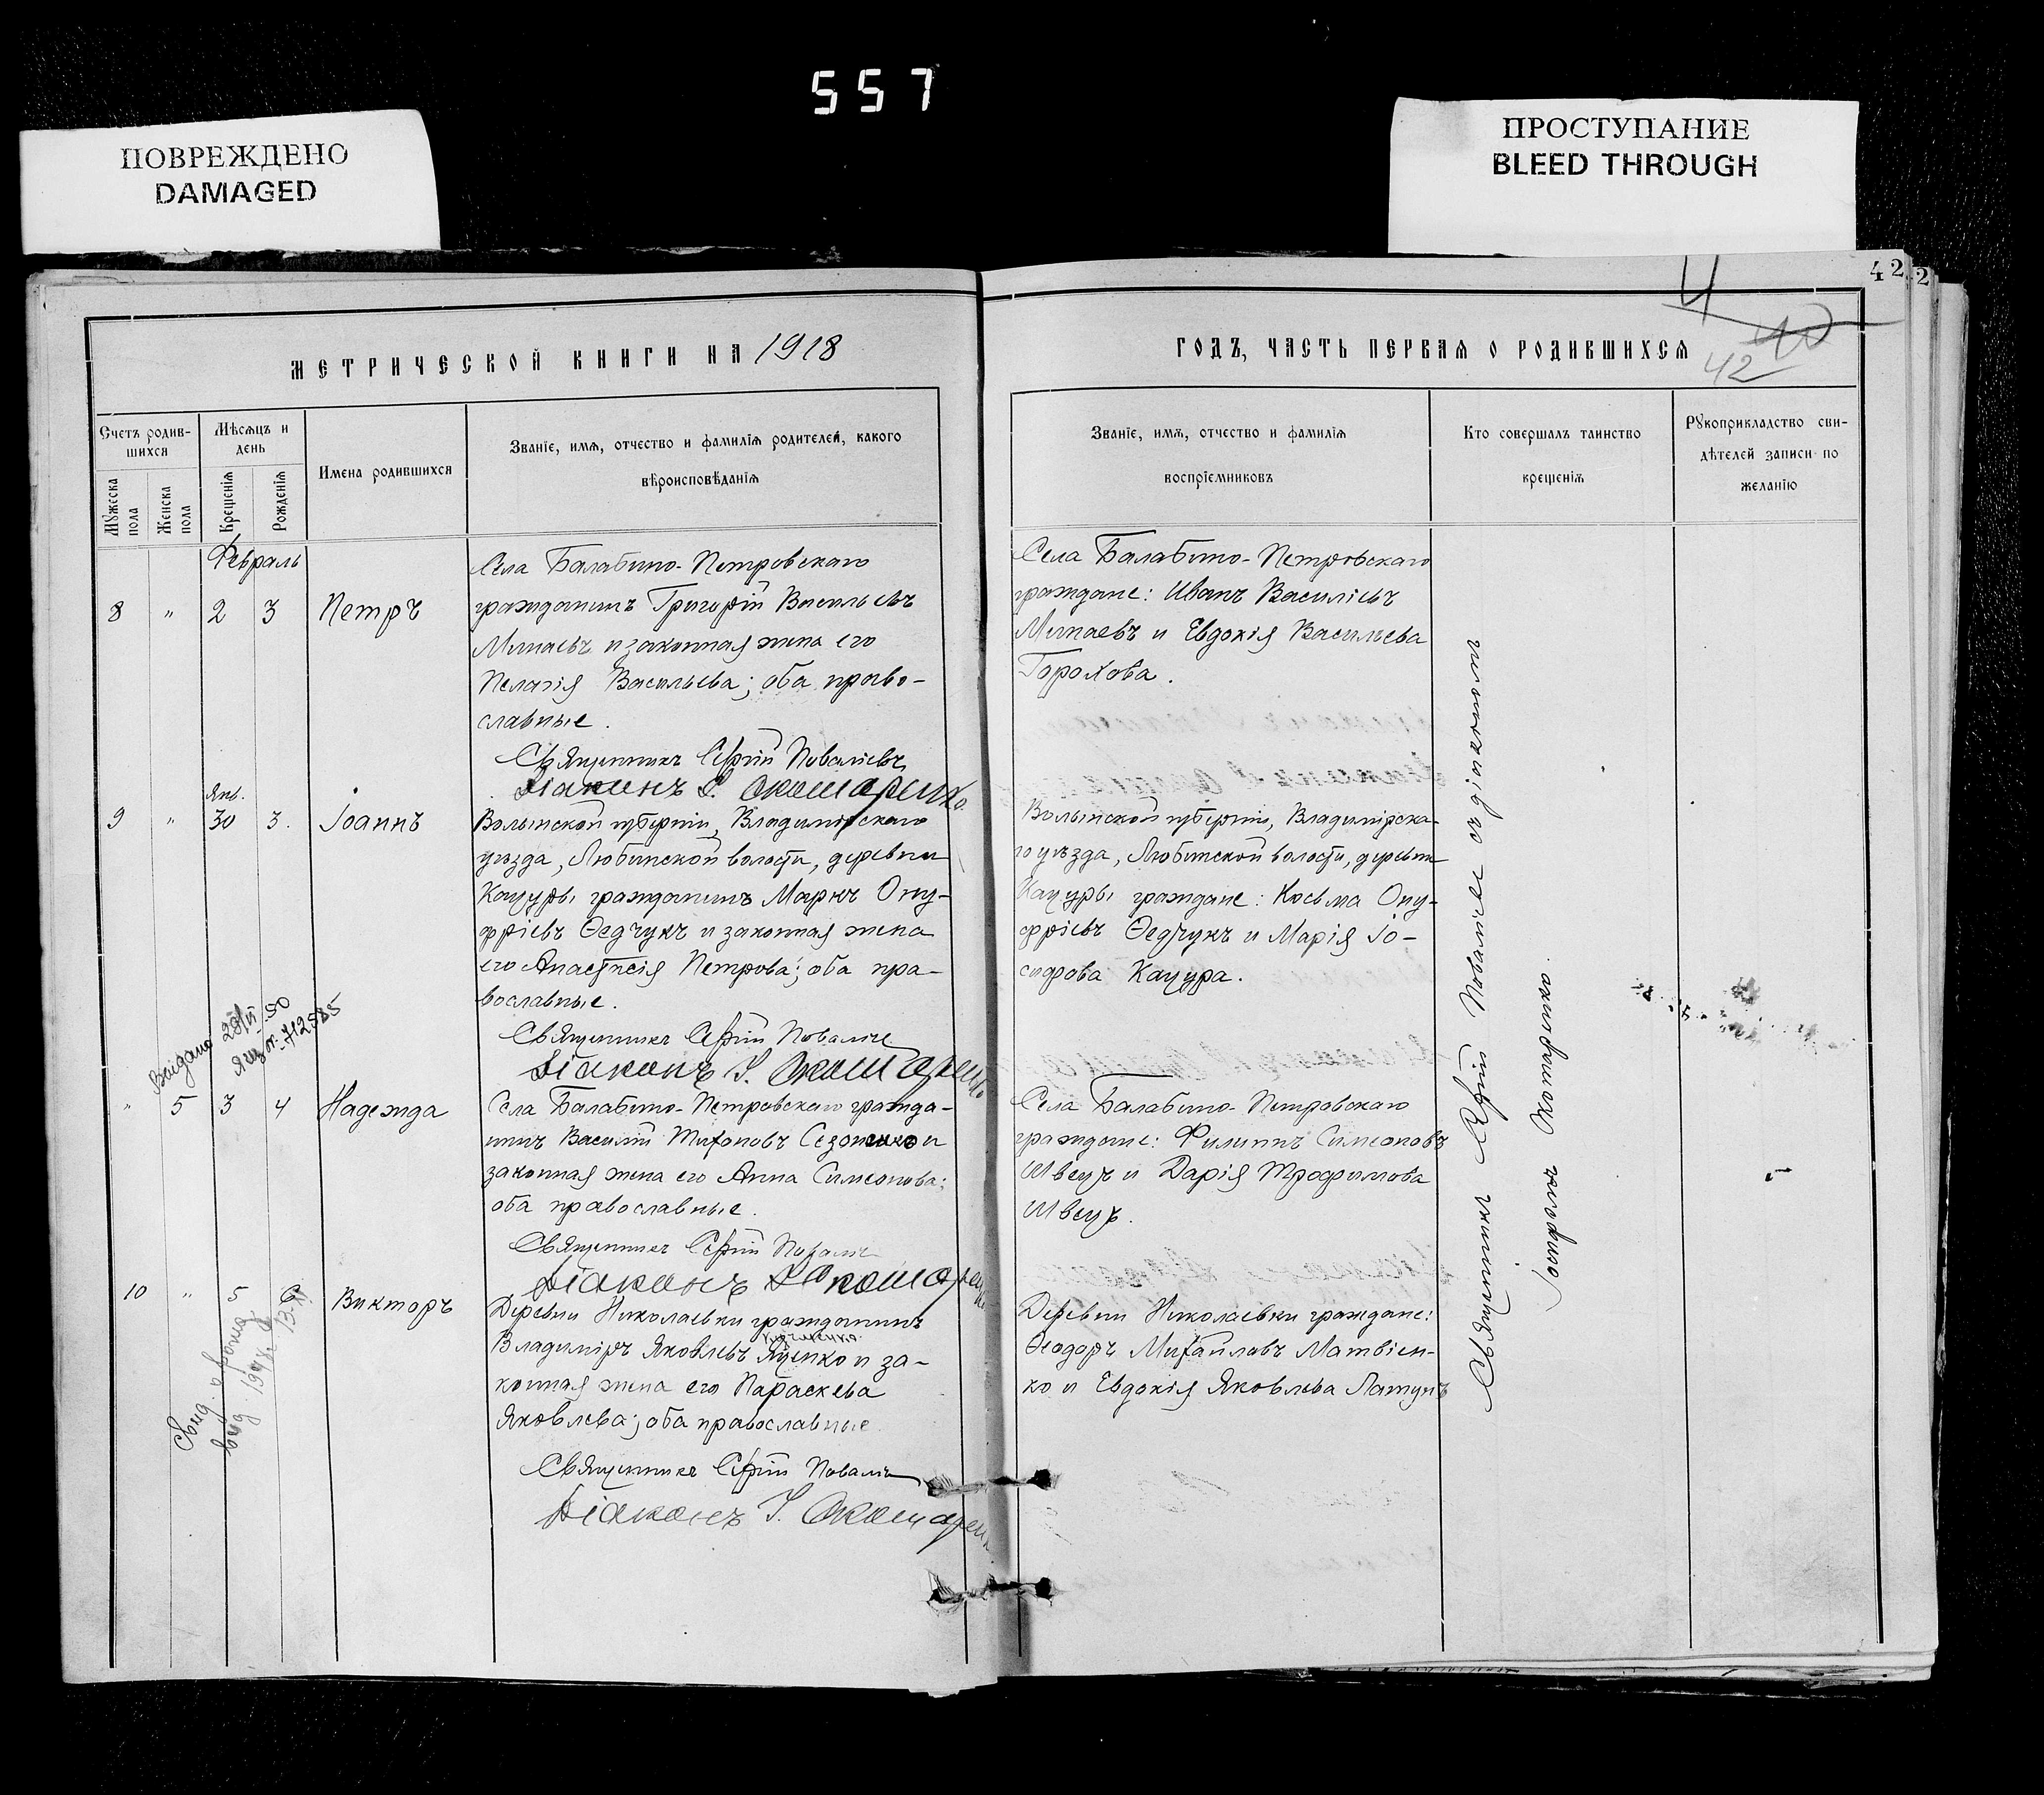 557
ПОВРЕЖДЕНО
DAMAGED
ПРОСТУПАНИЕ
BLEED THROUGH
42
2
4
40
42
МЕТРИЧЕСКОЙ КНИГИ НА 1918
Счетъ родив-
шихся
Мѣсяцъ и
день
Мужеска
пола
Женска
пола
Крещенія
Рожденія
Имена родившихся
Званіе, имя, отчество и фамилія родителей, какого
вѣроисповѣданія
Февраль
8 " 2 3 Петръ
Села Балабино-Петровскаго
гражданинъ Григорій Васильевъ
Минаевъ и законная жена его
Пелагія Васильева; оба право-
славные.
Священникъ Сергій
Діаконъ
Янв.
9 " 30 3. Іоаннъ
Волынской губерніи, Владимірскаго
уѣзда, Любинской волости, деревни
Кацуры гражданинъ Маркъ Ону-
фріевъ Ѳедчукъ и законная жена
его Анастасія Петрова; оба пра-
вославные.
Священникъ Сергій
Діаконъ
Выдано
712585
" 5 3 4 Надежда
Села Балабино-Петровскаго гражда-
нинъ Василій Тихоновъ Сезоненко и
законная жена его Анна Симеонова;
оба православные.
Священникъ Сергій
Діаконъ
10 " 5 6 Викторъ
Свид. о рожд.
выд.
Деревни Николаевки гражданинъ
Владиміръ Яковлевъ Яценко и за-
конная жена его Параскева
Яковлева; оба православные
Священникъ Сергій
Діаконъ
ГОДЪ, ЧАСТЬ ПЕРВАЯ О РОДИВШИХСЯ
Званіе, имя, отчество и фамилія
воспріемниковъ
Кто совершалъ таинство
крещенія
Рукоприкладство сви-
дѣтелей записи по
желанію
Села Балабино-Петровскаго
граждане: Иванъ Василіевъ
Минаевъ и Евдокія Васильева
Горохова.
Волынской губерніи, Владимірска-
го уѣзда, Любинской волости, деревни
Кацуры граждане: Косьма Ону-
фріевъ Ѳедчукъ и Марія Іо-
сифова Кацура.
Села Балабино-Петровскаго
граждане: Филиппъ Симеоновъ
Швецъ и Дарія Трофимова
Швецъ.
Деревни Николаевки граждане:
Ѳеодоръ Михайловъ Матвіен-
ко и Евдокія Яковлева
Священникъ Сергій съ діакономъ